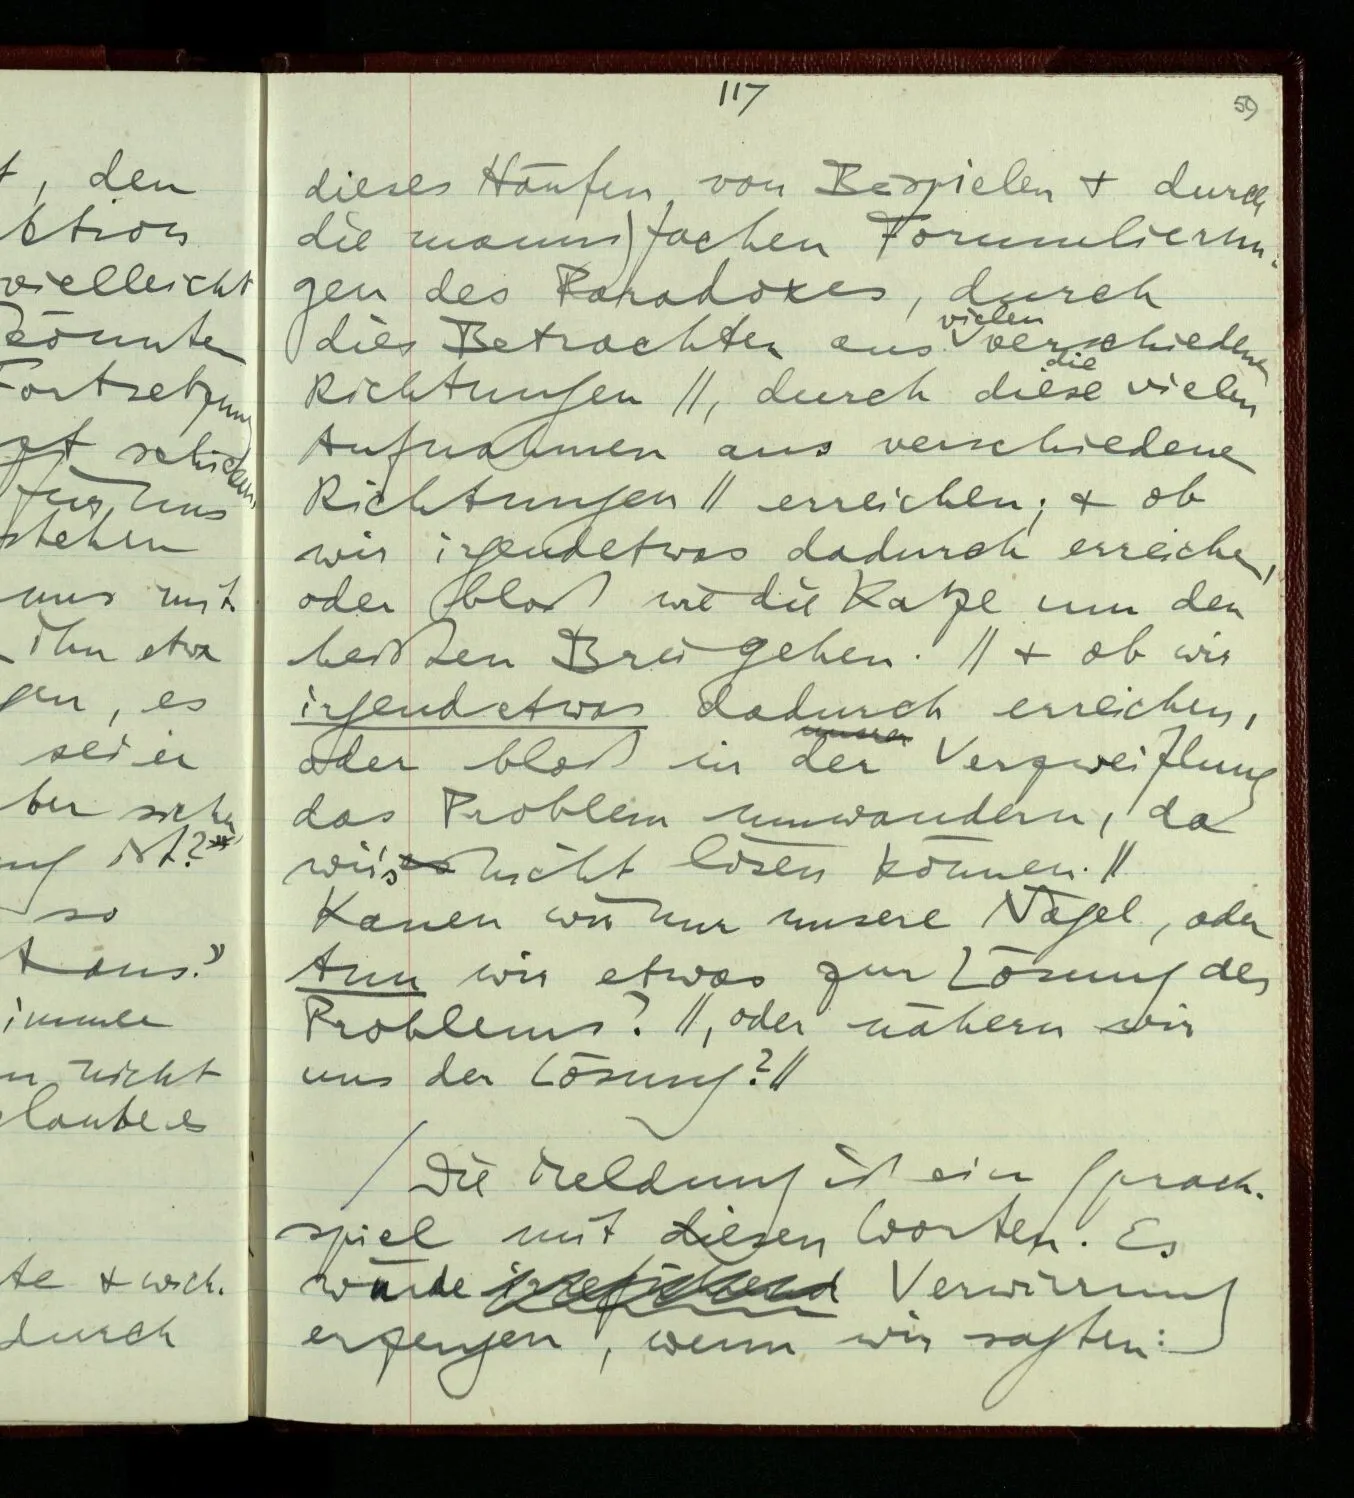 117
59
t, den
ktion
vielleicht
könnten
Fortsetzung
für uns
stehen
uns mit
ihn etwa
gen, es
sei er
ber sicher
ist?"
so
aus."
immer
nicht
glaube es
te + wich-
durch
dieses Häufen von Beispielen + durch
die mannigfachen Formulierun-
gen des Paradoxes, durch
vielen
dies Betrachten aus verschiedenen
die
Richtungen //, durch diese vielen
Aufnahmen aus verschiedene
Richtungen // erreichen; + ob
wir irgendetwas dadurch erreichen,
oder bloß wie die Katze um den
heißen Brei gehen. // + ob wir
irgendetwas dadurch erreichen,
unsrer
oder bloß in der Verzweiflung
das Problem umwandern, da
wir's es nicht lösen können. //
Kauen wir nur unsere Nägel, oder
tun wir etwas zur Lösung des
Problems? //, oder nähern wir
uns der Lösung? //
/ Die Meldung ist ein Sprach-
spiel mit diesen Worten. Es
würde irreführend Verwirrung
erzeugen, wenn wir sagten: